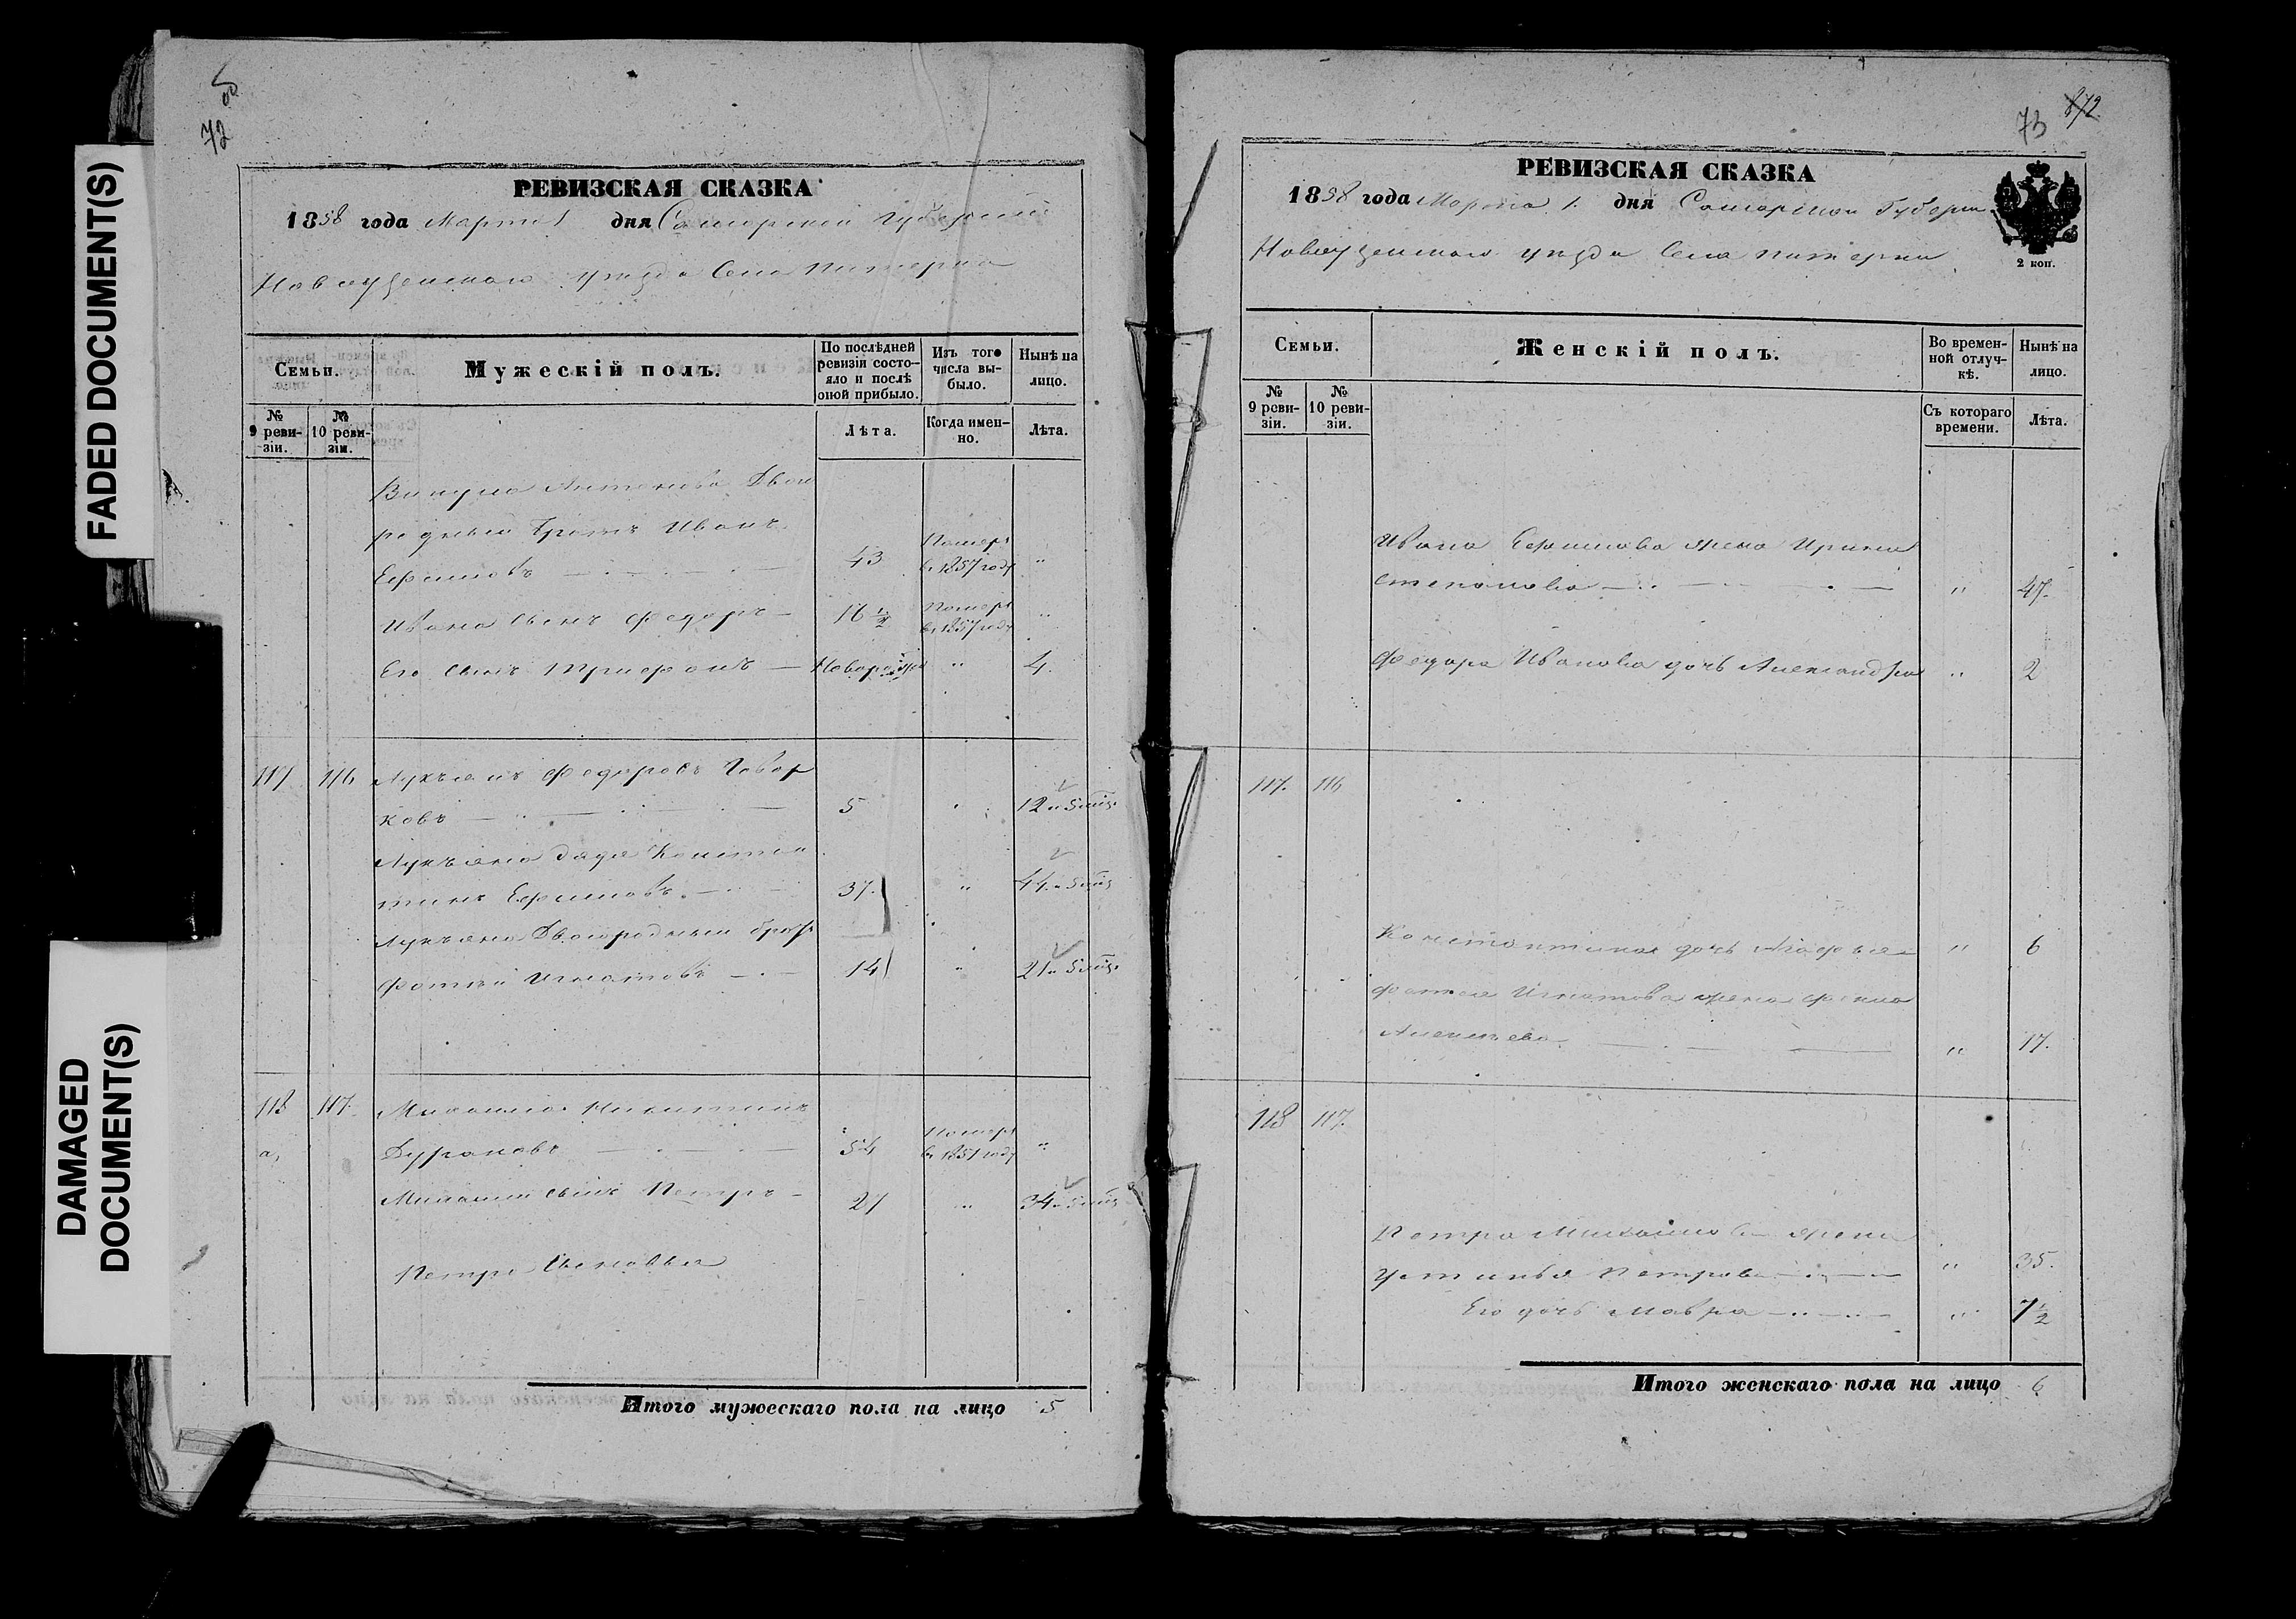 FADED DOCUMENT(S)
DAMAGED
DOCUMENT(S)
72
РЕВИЗСКАЯ СКАЗКА
1858 года Марта 1 дня Самарской Губернии
Новоузенскаго уезда Села Питерки
Семьи.
Мужескій полъ.
По послѣдней
ревизіи состо-
яло и послѣ
оной прибыло.
Изъ того
числа вы-
было.
Нынѣ на
лицо.
№
9 реви-
зіи.
№
10 реви-
зіи.
Лѣта.
Когда имен-
но.
Лѣта.
Викула Антонова Двою
родный братъ Иванъ
Ефимовъ 43 Померъ
въ 1857 году "
Ивана сынъ Федоръ 16 ½ Померъ
въ 1857 году "
Его сынъ Трифонъ Новорожд " 4
117 116 Лукьянъ Федоровъ Говор
ковъ 5 " 12 и 5 мѣц.
Лукьяна дядя Констан
тинъ Ефимовъ 37. " 44 и 5 мѣц
Лукьяна Двоюродный братъ
Фотей Игнатовъ 14 " 21 и 5 мѣц.
118 117. Михаила Никитинъ
а,
Дурановъ 54 Померъ
въ 1857 году "
Михаилы сынъ Петръ 27 " 34 и 5 мѣц
Петра Сыновья
Итого мужескаго пола на лицо 5
73 872
РЕВИЗСКАЯ СКАЗКА
1858 года Марта 1. дня Самарской Губерни
Новоузенскаго уезда Села Питерки
2 коп.
Семьи.
Женскій полъ.
Во времен-
ной отлуч-
кѣ.
Нынѣ на
лицо.
№
9 реви-
зіи.
№
10 реви-
зіи.
Съ котораго
времени.
Лѣта.
Ивана Ефимова жена Ирина
Степанова " 47.
Федора Иванова дочь Александра " 2
117. 116
Константина дочь Агафья " 6
Фотея Игнатова жена Фекла
Алексѣева " 17.
118 117.
Петра Михайлова жена
Устинья Петрова " 35.
Его дочь Мавра " 7 ½
Итого женскаго пола на лицо 6